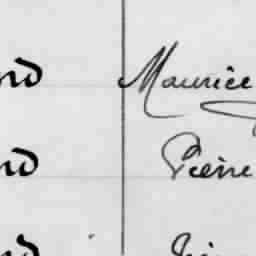 nd Maurice
nd Pierre
nd